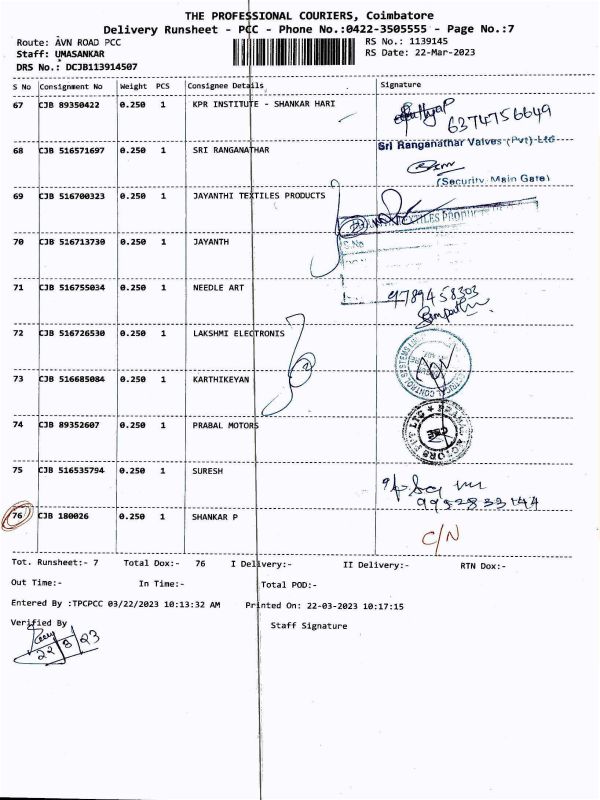 THE PROFESSIONAL COURIERS, Coimbatore
Delivery Runsheet - PCC - Phone No.:0422-3505555 - Page No.:7
Route: AVN ROAD PCC
RS No.: 1139145
Staff: UMASANKAR
RS Date: 22-Mar-2023
DRS No.: DCJB113914507
S No Consignment No Weight PCS Consignee Details Signature
67 CJB 89350422 0.250 1 KPR INSTITUTE - SHANKAR HARI
6374756649
68 CJB 516571697 0.250 1 SRI RANGANATHAR Sri Ranganathar Valves (Pvt) Ltd
(Security, Main Gate)
69 CJB 516700323 0.250 1 JAYANTHI TEXTILES PRODUCTS
70 CJB 516713730 0.250 1 JAYANTH
S.No
71 CJB 516755034 0.250 1 NEEDLE ART 9789458303
72 CJB 516726530 0.250 1 LAKSHMI ELECTRONIS
73 CJB 516685084 0.250 1 KARTHIKEYAN
74 CJB 89352607 0.250 1 PRABAL MOTORS
75 CJB 516535794 0.250 1 SURESH
9952833144
76 CJB 180026 0.250 1 SHANKAR P C/N
Tot. Runsheet:- 7 Total Dox:- 76 I Delivery:- II Delivery:- RTN Dox:-
Out Time:- In Time:- Total POD:-
Entered By :TPCPCC 03/22/2023 10:13:32 AM Printed On: 22-03-2023 10:17:15
Verified By Staff Signature